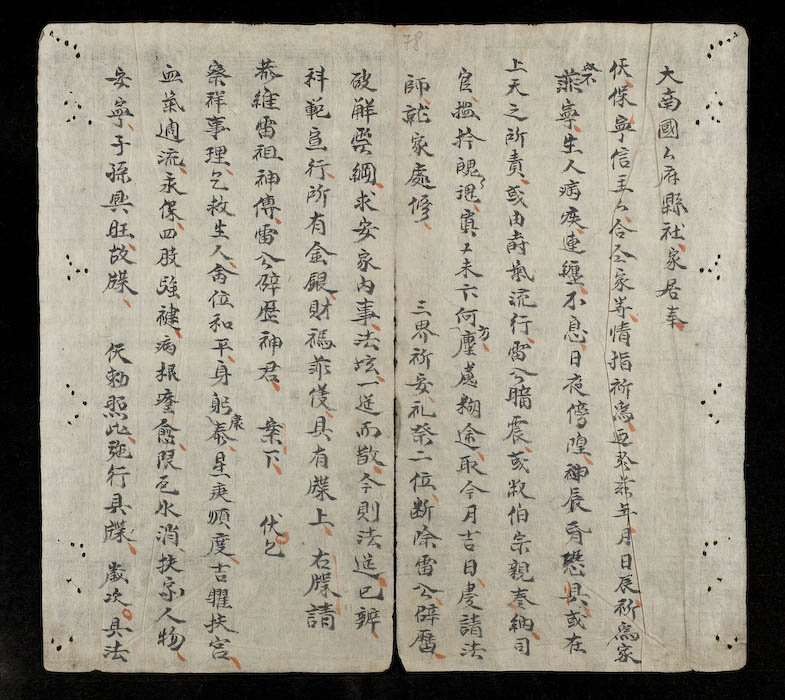 大南國厶府縣社家居奉
仸保寧信主厶合全家等情指祈為 日辰祈為家
致不
寧生人病疾連纏不息日夜傍惶神辰昏懸具或在
上天之所責或由時氣流行雷公暗震或叔伯宗親奏納司
官 冥 未卜何塵慮糊途取今月吉日虔請法
方
師就家處修 三界祈安礼祭二位断除雷公霹靂
破解 綱求安家內事法壇一筵而散今則法筵已辨
科範宣行所有金銀財禡 具有牒上右牒請
恭維雷祖神傳雷公霹靂神君 案下 伏乞
察祥事理乞救生人 位和平身躬泰星庚順度吉曜扶宫
康
血氣通流永保四肢強健病根痊愈限厄氷消扶家人物
安寧子孫興旺故牒 仸勅照此施行具牒 歲次具法
78